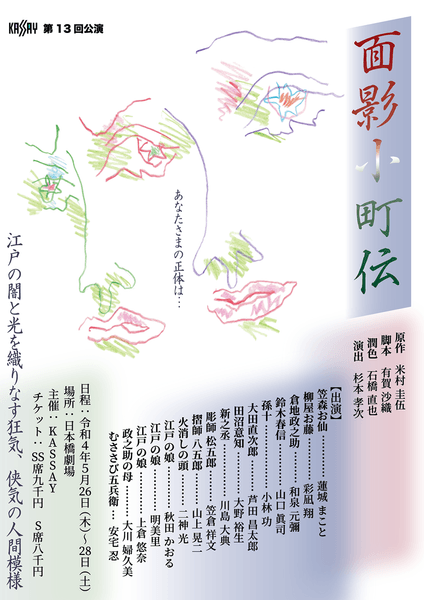 KASSAY 第13回公演
面影小町伝
あなたさまの正体は…
原作 米村 圭伍
脚本 有賀 沙織
潤色 石橋 直也
演出 杉本 孝次
【出演】
笠森お仙………………蓮城 まこと
柳屋お藤………………彩凪 翔
倉地政之助……………和泉 元彌
鈴木春信………………山口 眞司
孫十……………………小林 功
大田直次郎……………芦田 昌太郎
田沼意知………………大野 裕生
新之丞…………………川島 大典
彫師 松五郎……………笠倉 祥文
摺師 八五郎……………山上 晃二
火消しの頭……………二神 光
江戸の娘………………秋田 かおる
江戸の娘………………明 美里
江戸の娘………………上倉 悠奈
政之助の母……………大川 婦久美
むささび五兵衛………安宅 忍
日程：令和4年5月26日（木）～28日（土）
場所：日本橋劇場
主催：KASSAY
チケット： SS席九千円 S席八千円
江戸の闇と光を織りなす狂気、侠気の人間模様